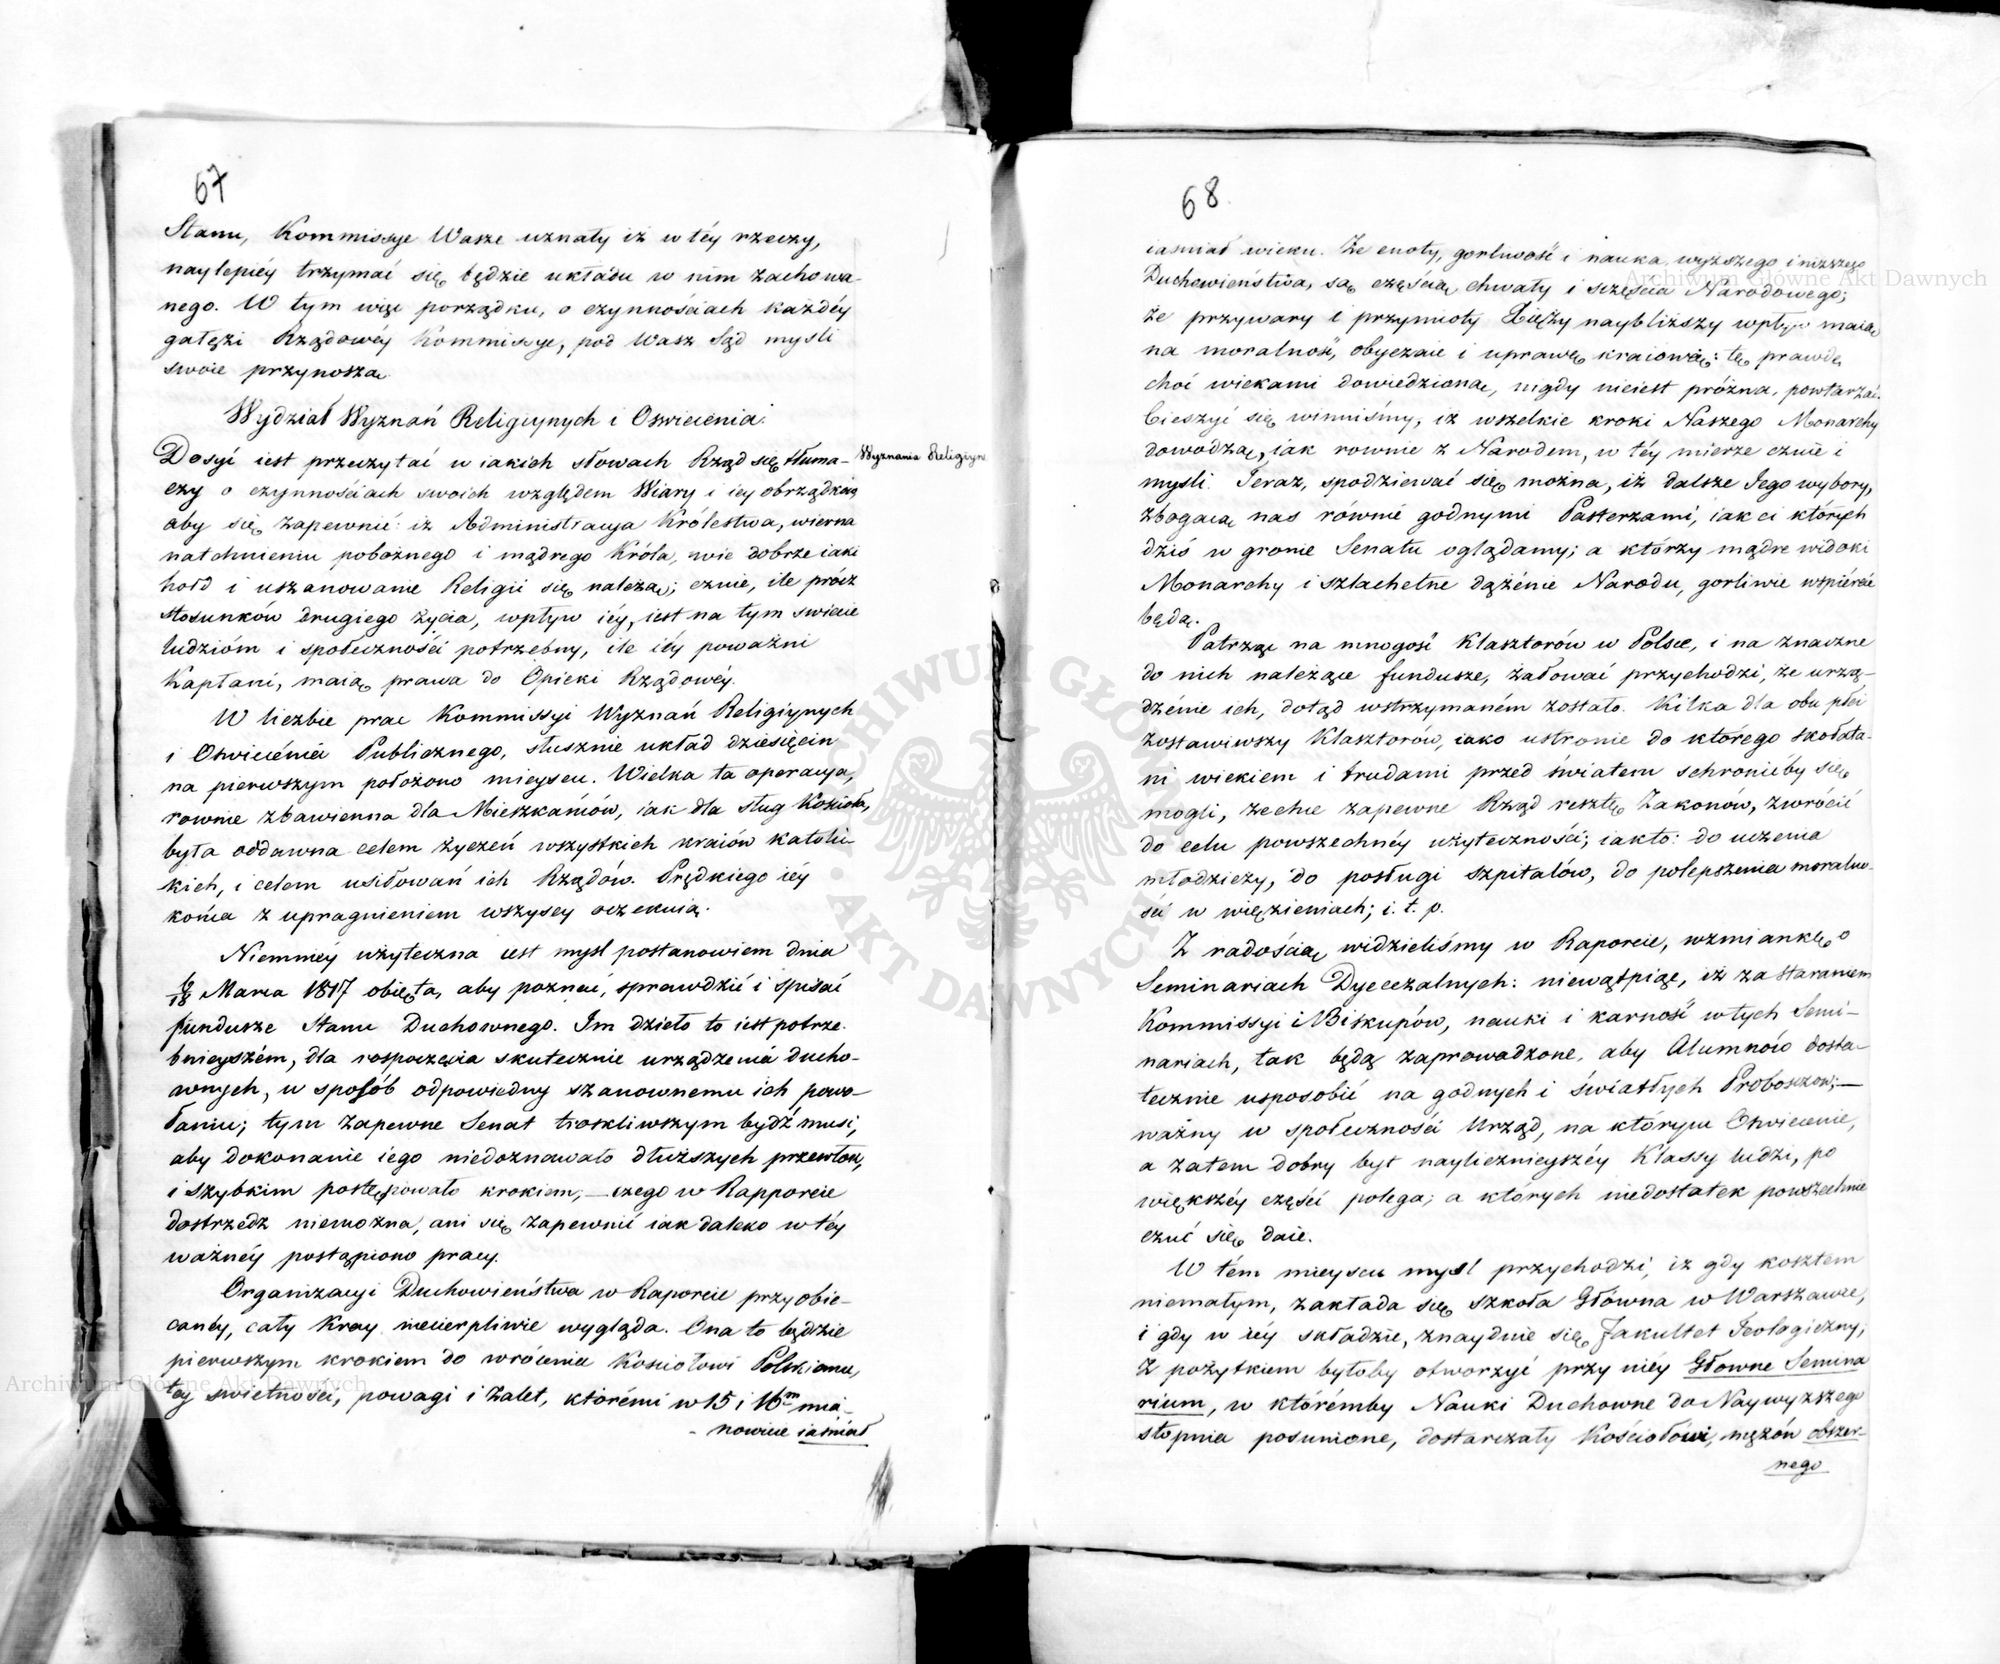 67
Stanu, Kommissye Wasze uznały iż w téy rzeczy,
naylepiéy trzymać się będzie układu w nim zachowa-
nego. W tym więc porządku, o czynnościach każdéy
gałęzi Rządowéy Kommissye, pod Wasz Sąd mysli
swoie przynoszą.
Wydział Wyznań Religiynych i Oswiecenia.
Dosyć iest przeczytać w iakich słowach Rząd się tłuma-
czy o czynnościach swoich względem Wiary i iey obrządków
aby się zapewnić: iż Administracya Królestwa, wierna
natchnieniu pobożnego i mądrego Króla, wie dobrze iaki
hołd i uszanowanie Religii się należą; czuie, ile prócz
stosunków drugiego życia, wpływ iéy, iest na tym swiecie
ludzióm i społeczności potrzebny, ile iéy poważni
Kapłani, maią prawa do Opieki Rządowéy.
Wyznania Religiyn
W liczbie prac Kommissyi Wyznań Religiynych
i Oświécénia Publicznego, słusznie układ dziesięcin
na pierwszym położono mieyscu. Wielka ta operacya,
rownie zbawienna dla Mieszkańców, iak dla sług Kościoła,
była oddawna celem życzeń wszystkich kraiów katolic-
kich, i celem usiłowań ich Rządów. Prędkiego iéy
końca z upragnieniem wszyscy oczekuią.
Niemniéy użyteczna iest mysl postanowiem dnia
6/18 Marca 1817 obięta, aby poznać, sprawdzić i spisać
fundusze Stanu Duchownego. Im dzieło to iest potrze-
bnieyszém, dla rospoczęcia skutecznie urządzenia ducho-
wnych, w sposób odpowiedny szanownemu ich powo-
łaniu; tym zapewne Senat troskliwszym bydź musi,
aby dokonanie iego niedoznawało dłuższych przewłok,
i szybkim postępowało krokiem; — czego w Rapporcie
dostrzedz niemożna, ani się zapewnić iak daleko w téy
ważnéy postąpiono pracy.
Organizacyi Duchowieństwa w Raporcie przyobie-
canéy, cały Kray niecierpliwie wygląda. Ona to będzie
pierwszym krokiem do wrócenia Kościołowi Polskiemu,
téy swietności, powagi i zalet, którémi w 15 i 16m mia-
- nowicie iaśniał
68
iaśniał wieku. Że cnoty, gorliwość i nauka, wyższego i niższego
Duchowieństwa, są częścią chwały i sczęscia Narodowego;
że przywary i przymioty Xięży naybliższy wpływ maią
na moralność, obyczaie i uprawę kraiową: tę prawdę
choć wiekami dowiedzioną, nigdy nieiest próżna, powtarzać.
Cieszyć się winniśmy, iż wszelkie kroki Naszego Monarchy
dowodzą, iak rownie z Narodem, w téy mierze czuie i
mysli. Teraz, spodziewać się można, iż dalsze Jego wybory,
zbogacą nas równie godnymi Pasterzami, iak ci których
dziś w gronie Senatu oglądamy; a którzy mądre widoki
Monarchy i szlachetne dążénie Narodu, gorliwie wspiérać
będą.
Patrząc na mnogość Klasztorów w Polsce, i na znaczne
do nich należące fundusze, żałować przychodzi, że urzą-
dzénie ich, dotąd wstrzymaném zostało. Kilka dla obu płci
zostawiwszy Klasztorów, iako ustronie do którego skołata-
ni wiekiem i trudami przed światem schronićby się
mogli, zechce zapewne Rząd resztę Zakonów, zwrócić
do celu powszechnéy użyteczności; iakto: do uczenia
młodzieży, do posługi szpitalów, do polepszenia moralno-
ści w więzieniach; i. t. p.
Z radością widzieliśmy w Raporcie, wzmiankę o
Seminariach Dyecezalnych: niewątpiąc, iż za staraniem
Kommissyi i Biskupów, nauki i karność w tych Semi-
nariach, tak będą zaprowadzone, aby Alumnów dosta-
tecznie usposobić na godnych i światłych Proboszczów; —
ważny w społeczności Urząd, na którym Oświecenie,
a zatem dobry byt nayliczniejszéy Klassy ludzi, po
większéy części polega; a których niedostatek powszechnie
czuć się daie.
W tém mieyscu mysl przychodzi, iż gdy kosztem
niemałym, zakłada się szkoła Główna w Warszawie,
i gdy w iéy składzie, znayduie się Fakultet Teologiczny;
z pożytkiem byłoby otworzyć przy niéy Głowne Semina
rium, w którémby Nauki Duchowne do Naywyższego
stopnia posunione, dostarczały Kościołowi, mężów obszer-
nego
Archiwum Główne Akt Dawnych
Archiwum Główne Akt Dawnych
ARCHIWUM GŁÓWNE AKT DAWNYCH